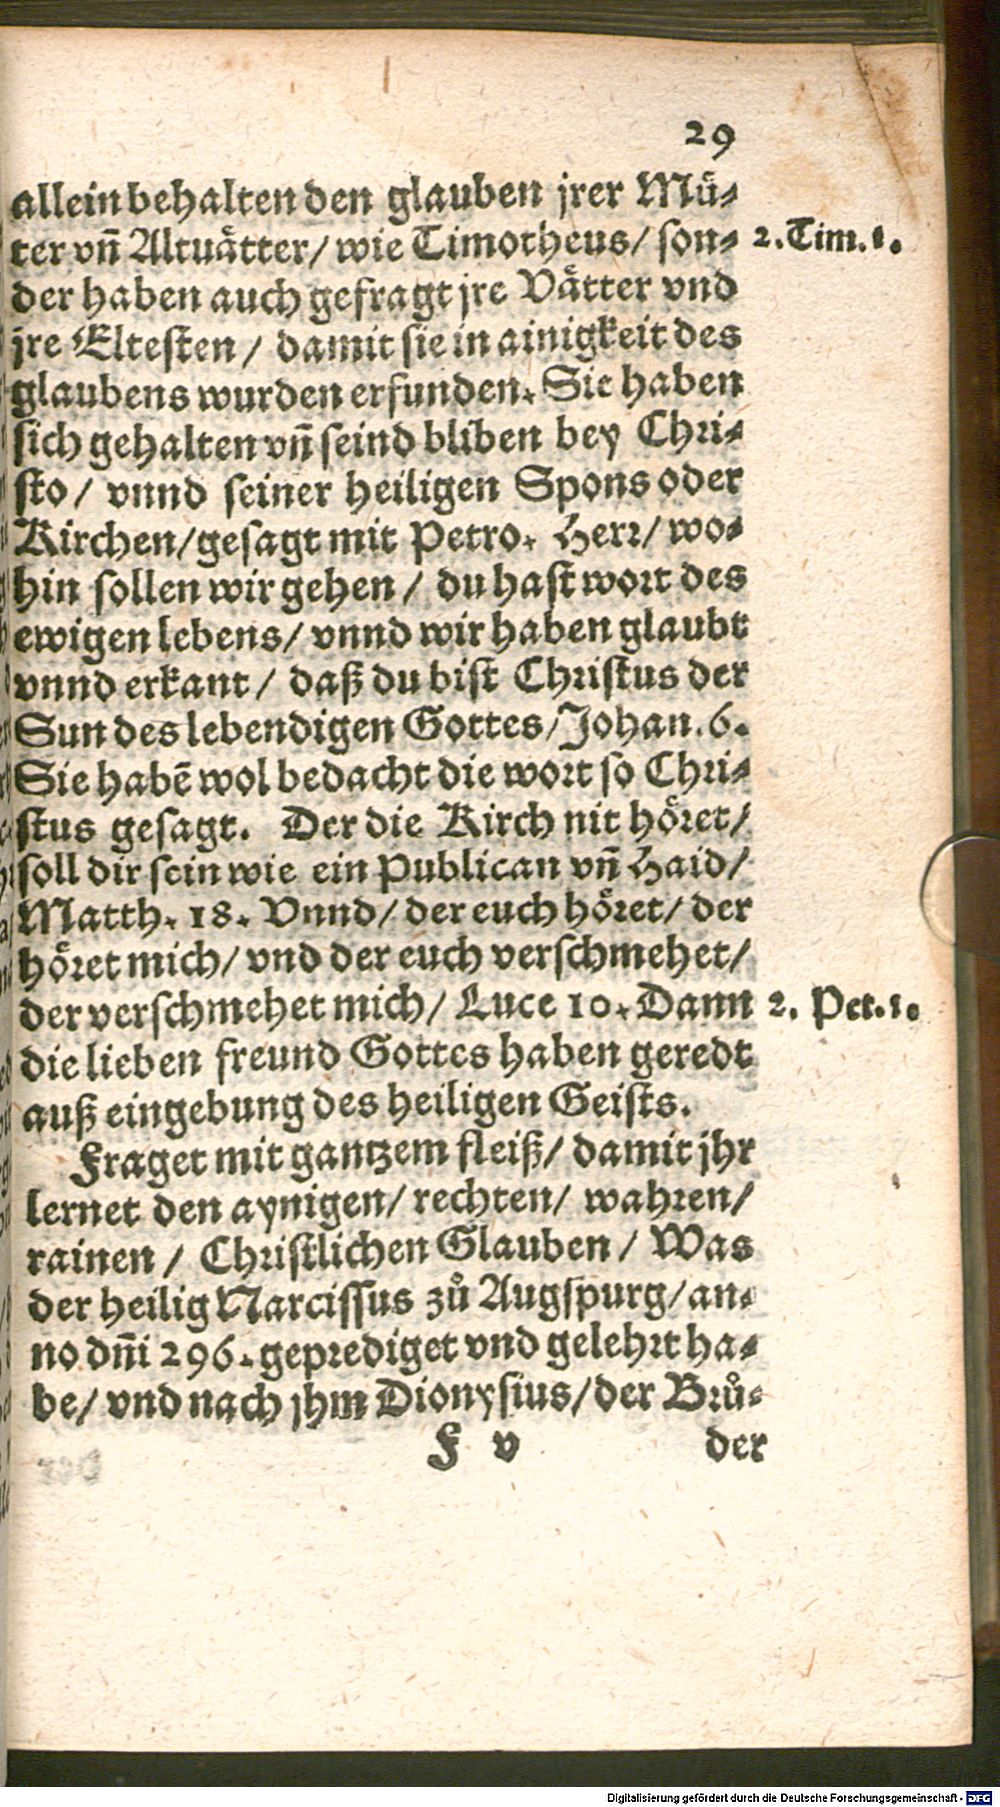 29
allein behalten den glauben jrer Muͤ-
ter vñ Altuaͤtter/ wie Timotheus/ son-
2. Tim. 1.
der haben auch gefragt jre Vaͤtter vnd
jre Eltesten/ damit sie in ainigkeit des
glaubens wurden erfunden. Sie haben
sich gehalten vñ seind bliben bey Chri-
sto/ vnnd seiner heiligen Spons oder
Kirchen/ gesagt mit Petro. Herr/ wo-
hin sollen wir gehen/ du hast wort des
ewigen lebens/ vnnd wir haben glaubt
vnnd erkant/ daß du bist Christus der
Sun des lebendigen Gottes/ Johan. 6.
Sie habẽ wol bedacht die wort so Chri-
stus gesagt. Der die Kirch nit hoͤret/
soll dir sein wie ein Publican vñ Haid/
Matth. 18. Vnnd/ der euch hoͤret/ der
hoͤret mich/ vnd der euch verschmehet/
der verschmehet mich/ Luce 10. Dann
2. Pet. 1.
die lieben freund Gottes haben geredt
auß eingebung des heiligen Geists.
Fraget mit gantzem fleiß/ damit jhr
lernet den aynigen/ rechten/ wahren/
rainen/ Christlichen Glauben/ Was
der heilig Narcissus zů Augspurg/ an-
no dñi 296. geprediget vnd gelehrt ha-
be/ vnd nach jhm Dionysius/ der Brů-
F v der
Digitalisierung gefördert durch die Deutsche Forschungsgemeinschaft - DFG